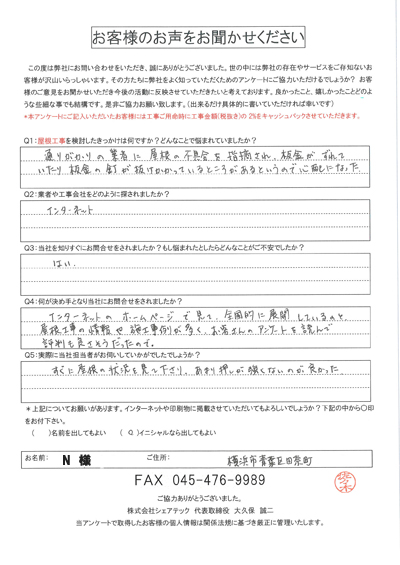 お客様のお声をお聞かせください
この度は弊社にお問い合わせをいただき、誠にありがとうございました。世の中には弊社の存在やサービスをご存知ないお
客様が沢山いらっしゃいます。その方たちに弊社をよく知っていただくためのアンケートにご協力いただけるでしょうか? お客
様のご意見をお聞かせいただき今後の活動に反映させていただきたいと考えております。良かったこと、嬉しかったことどのよ
うな些細な事でも結構です。是非ご協力お願い致します。(出来るだけ具体的に書いていただければ幸いです)
*本アンケートにご記入いただいたお客様には工事ご用命時に工事金額(税抜き)の2%をキャッシュバックさせていただきます。
Q1:屋根工事を検討したきっかけは何ですか?どんなことで悩まれていましたか?
通りがかりの業者に屋根の不具合を指摘され、板金がずれて
いたり板金の釘が抜けかかっているところがあるというので心配になった
Q2:業者や工事会社をどのように探されましたか?
インターネット
Q3:当社を知りすぐにお問合せをされましたか?もし悩まれたとしたらどんなことがご不安でしたか?
はい
Q4:何が決め手となり当社にお問合せをされましたか?
インターネットのホームページで見て、全国的に展開しているのと、
屋根工事の情報や施工事例が多く、お客さんのアンケートを読んで
評判も良さそうだったので。
Q5:実際に当社担当者がお伺いしていかがでしたでしょうか?
すぐに屋根の状況を見て下さり、あまり押しが強くないのが良かった
*上記についてお願いがあります。インターネットや印刷物に掲載させていただいてもよろしいでしょうか?下記の中から〇印
をお付下さい。
( )名前を出してもよい ( 〇 )イニシャルなら出してもよい
お名前: N 様 ご住所: 横浜市青葉区田奈町
FAX 045-476-9989
ご協力ありがとうございました。
株式会社シェアテック 代表取締役 大久保 誠二
当アンケートで取得したお客様の個人情報は関係法規に基づき厳正に管理いたします。